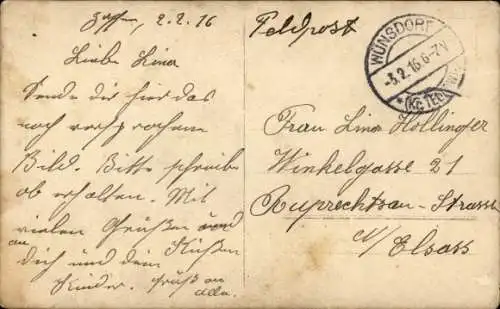 Zossen, 2.2.16
Liebe Lina
Sende dir hier das
noch versprochene
Bild. Bitte schreibe
ob erhalten. Mit
vielen Grüßen und
Küßen
an
dich und dein
Kinder. Gruß an
alle.
Feldpost
WÜNSDORF
-3.2.16.6-7N
* (KR. TELT
Frau Lina Hollinger
Winkelgasse 21
Ruprechtsau-Strassb
i/Elsass